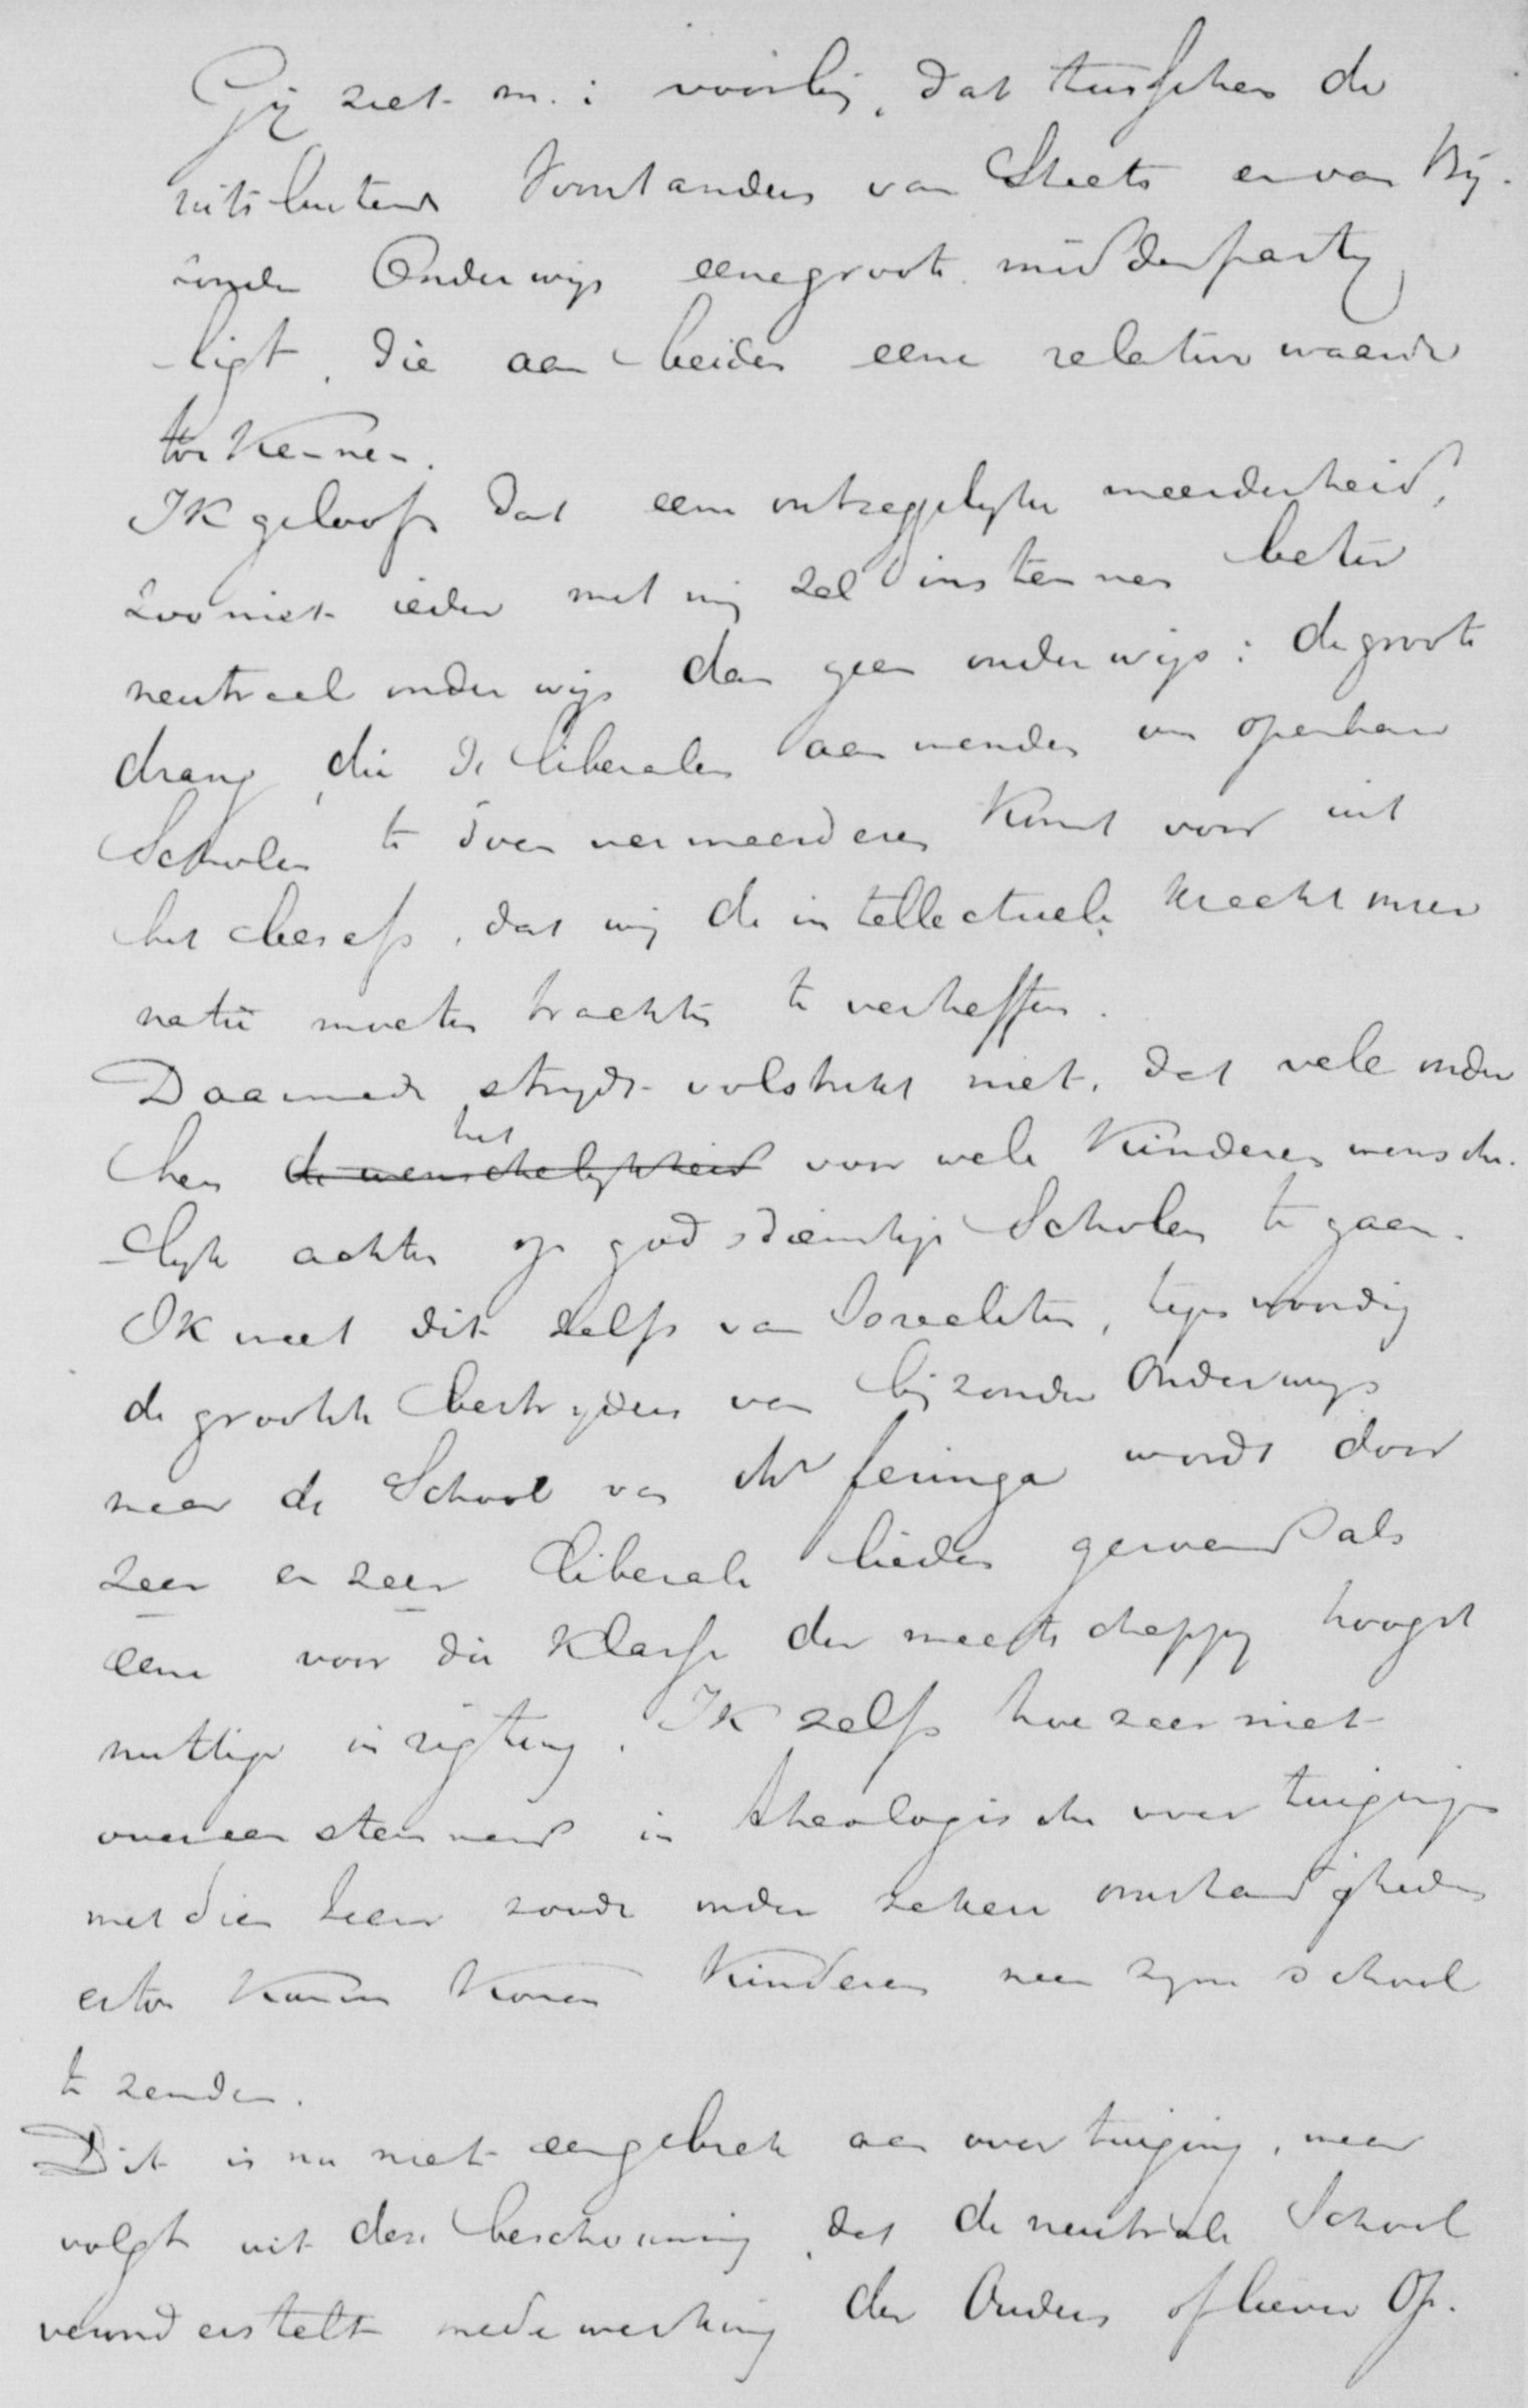 Gij ziet m. i. voorbij, dat tusschen de
uitsluitend Voorstanders van Staats en van Bij-
zonder Onderwijs eene groote middenpartij
ligt, die aan beiden eene relatieve waarde
toekennen.
Ik geloof dat eene ontzeggelijke meerderheid,
zoo niet ieder met mij zal instemmen beter
neutraal onderwijs dan geen onderwijs: de groote
drang, die de liberalen aanwenden om openbare
Scholen te doen vermeerderen komt voor uit
het besef, dat wij de intellectuele kracht onzer
natie moeten trachten te verheffen.
Daarmede strijdt volstrekt niet, dat vele onder
hen de wenschelijkheid het voor vele Kinderen wensche-
lijk achten op godsdienstige Scholen te gaan.
Ik weet dit zelfs van Israeliten, tegenwoordig
de grootste bestrijders van bijzonder Onderwijs
naar de School van dhr Feringa wordt door
zeer en zeer liberale lieden gewend als
eene voor die Klasse der maatschappij hoogst
nuttige inrigting. Ik zelf hoezeer niet
overeenstemmend in theologische overtuiging
met dien heer zoude onder zekere omstandigheden
ertoe kunnen komen Kinderen naar zijne school
te zenden.
Dit is nu niet een gebrek aan overtuiging, maar
volgt uit deze beschouwing, dat de neutrale School
veronderstelt medewerking der Ouders of liever Op-